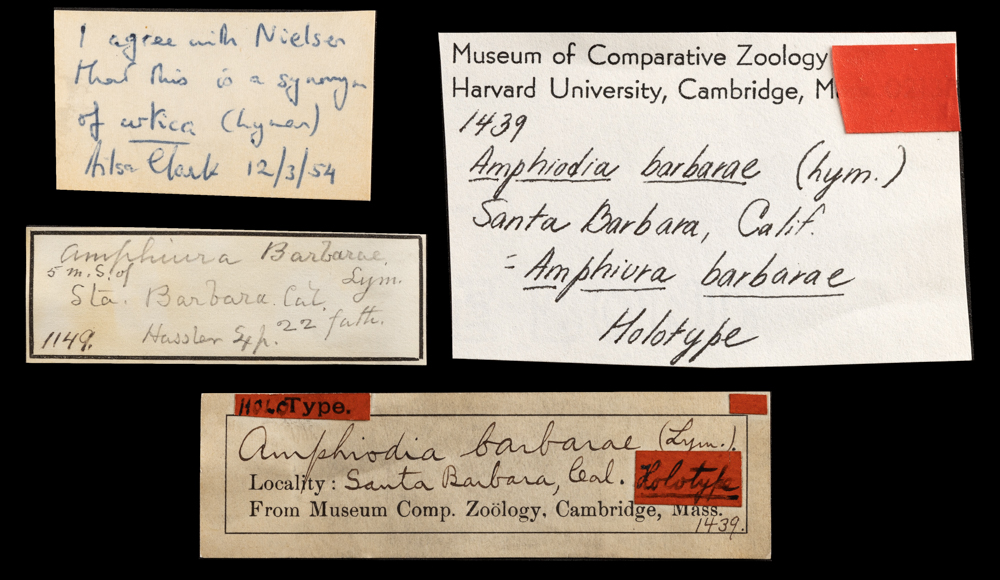 I agree with Nielsen
that this is a synonym
of urtica (Lyman)
Ailsa Clark 12/3/54
Museum of Comparative Zoology
Harvard University, Cambridge, M
1439
Amphiodia barbarae (Lym.)
Santa Barbara, Calif.
= Amphiura barbarae
Holotype
Amphiura Barbarae
5 m. S. of Lym.
Sta. Barbara. Cal.
1149. Hassler Exp. 22 fath.
HOLOType.
Amphiodia barbarae (Lym.).
Locality: Santa Barbara, Cal. Holotype
From Museum Comp. Zoölogy, Cambridge, Mass.
1439.